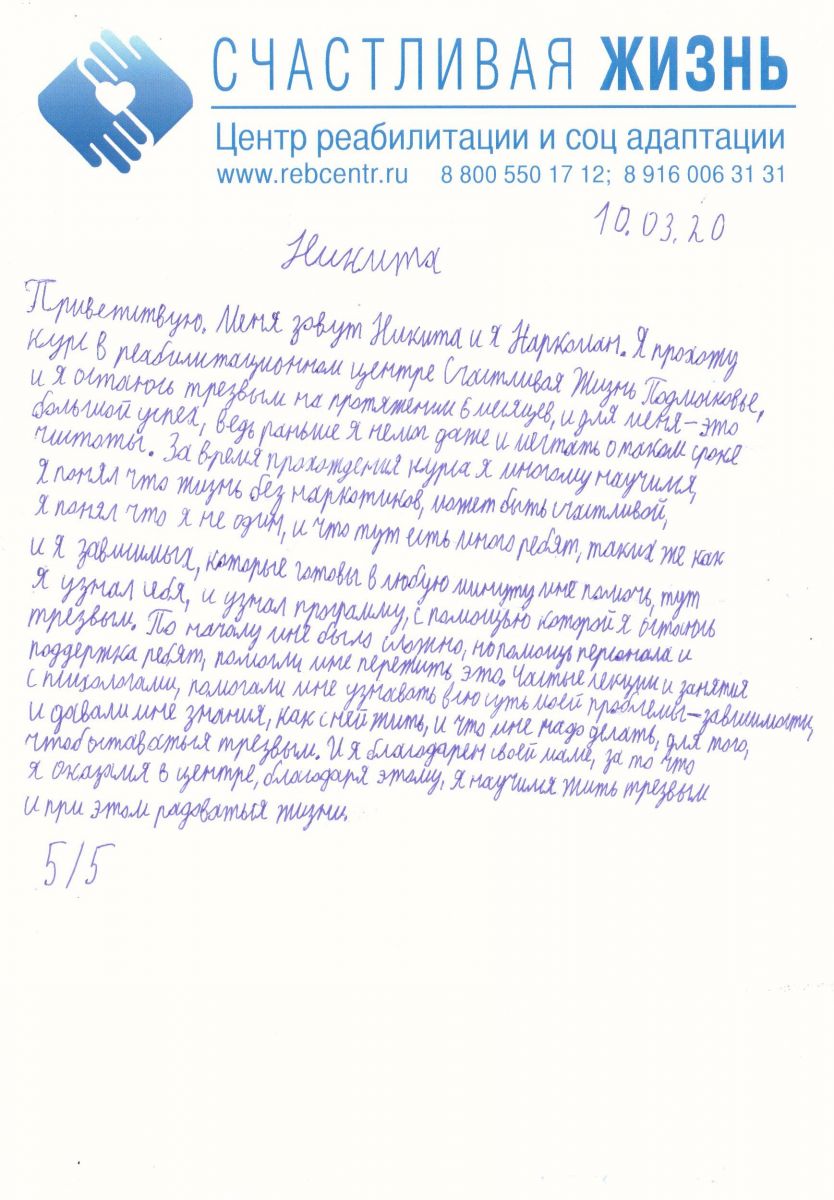 СЧАСТЛИВАЯ ЖИЗНЬ
Центр реабилитации и соц адаптации
www.rebcentr.ru 8 800 550 17 12; 8 916 006 31 31
10.03.20
Никита
Приветствую. Меня зовут Никита и я Наркоман. Я прохожу
курс в реабилитационном центре Счастливая Жизнь Подмосковье,
и я остаюсь трезвым на протяжении 6 месяцев, и для меня – это
большой успех, ведь раньше я не мог даже и мечтать о таком сроке
чистоты. За время прохождения курса я многому научился,
я понял что жизнь без наркотиков, может быть счастливой,
я понял что я не один, и что тут есть много ребят, таких же как
и я зависимых, которые готовы в любую минуту мне помочь, тут
я узнал себя, и узнал программу, с помощью которой я остаюсь
трезвым. По началу мне было сложно, но помощь персонала и
поддержка ребят, помогли мне пережить это. Частые лекции и занятия
с психологами, помогали мне узнавать всю суть моей проблемы – зависимости,
и давали мне знания, как с ней жить, и что мне надо делать, для того,
чтоб оставаться трезвым. И я благодарен своей маме, за то что
я оказался в центре, благодаря этому, я научился жить трезвым
и при этом радоваться жизни.
5/5